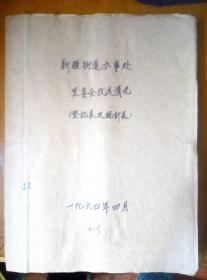 新疆街道办事处
里委会改选情况
(登记表及统计表)
一九六四年四月